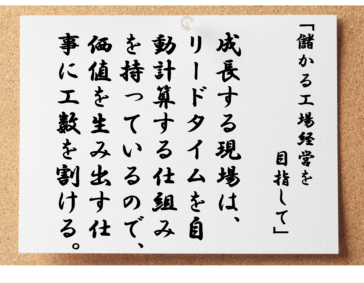 「儲かる工場経営を
目指して」
成長する現場は、
リードタイムを自
動計算する仕組み
を持っているので、
価値を生み出す仕
事に工数を割ける。